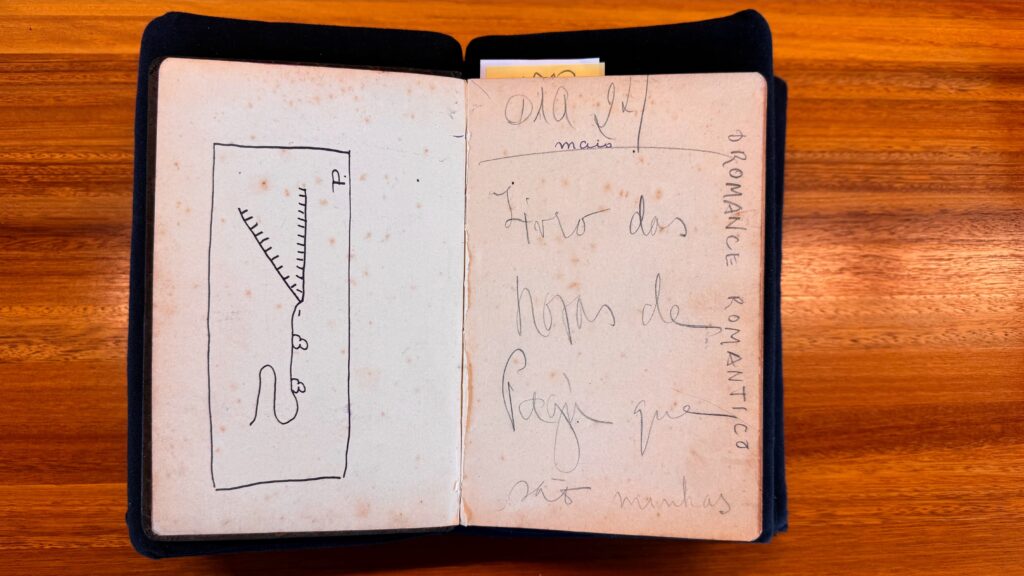 DIA 24
maio
Livro das
Horas de
Pagu que
são minhas
O ROMANCE ROMANTICO